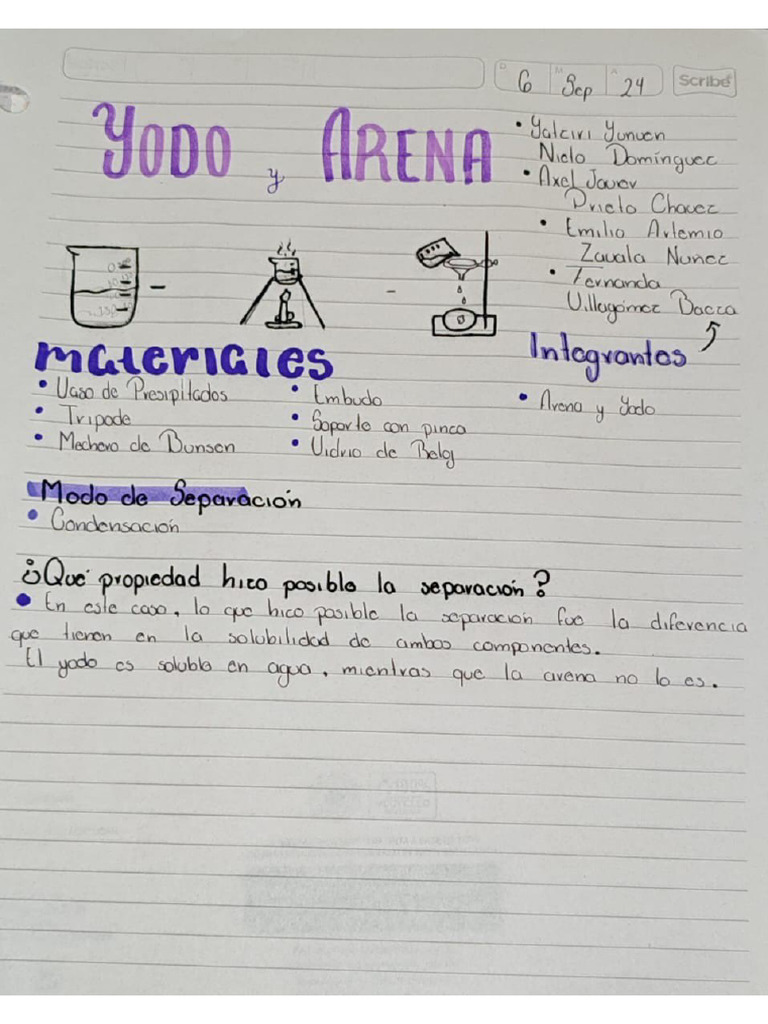 6 Sep 24 Scribe
YODO y ARENA
• Yalciri Yunuen
Nieto Domínguez
• Axel Javier
Prieto Chavez
• Emilio Artemio
Zavala Nuñez
• Fernanda
Villagómez Baeza
Integrantes
materiales
• Vaso de Presipitados
• Tripode
• Mechero de Bunsen
• Embudo
• Soporte con pinza
• Vidrio de Reloj
• Arena y Yodo
Modo de Separación
• Condensación
¿Qué propiedad hizo posible la separación?
• En este caso, lo que hizo posible la separación fue la diferencia
que tienen en la solubilidad de ambos componentes.
El yodo es soluble en agua, mientras que la arena no lo es.